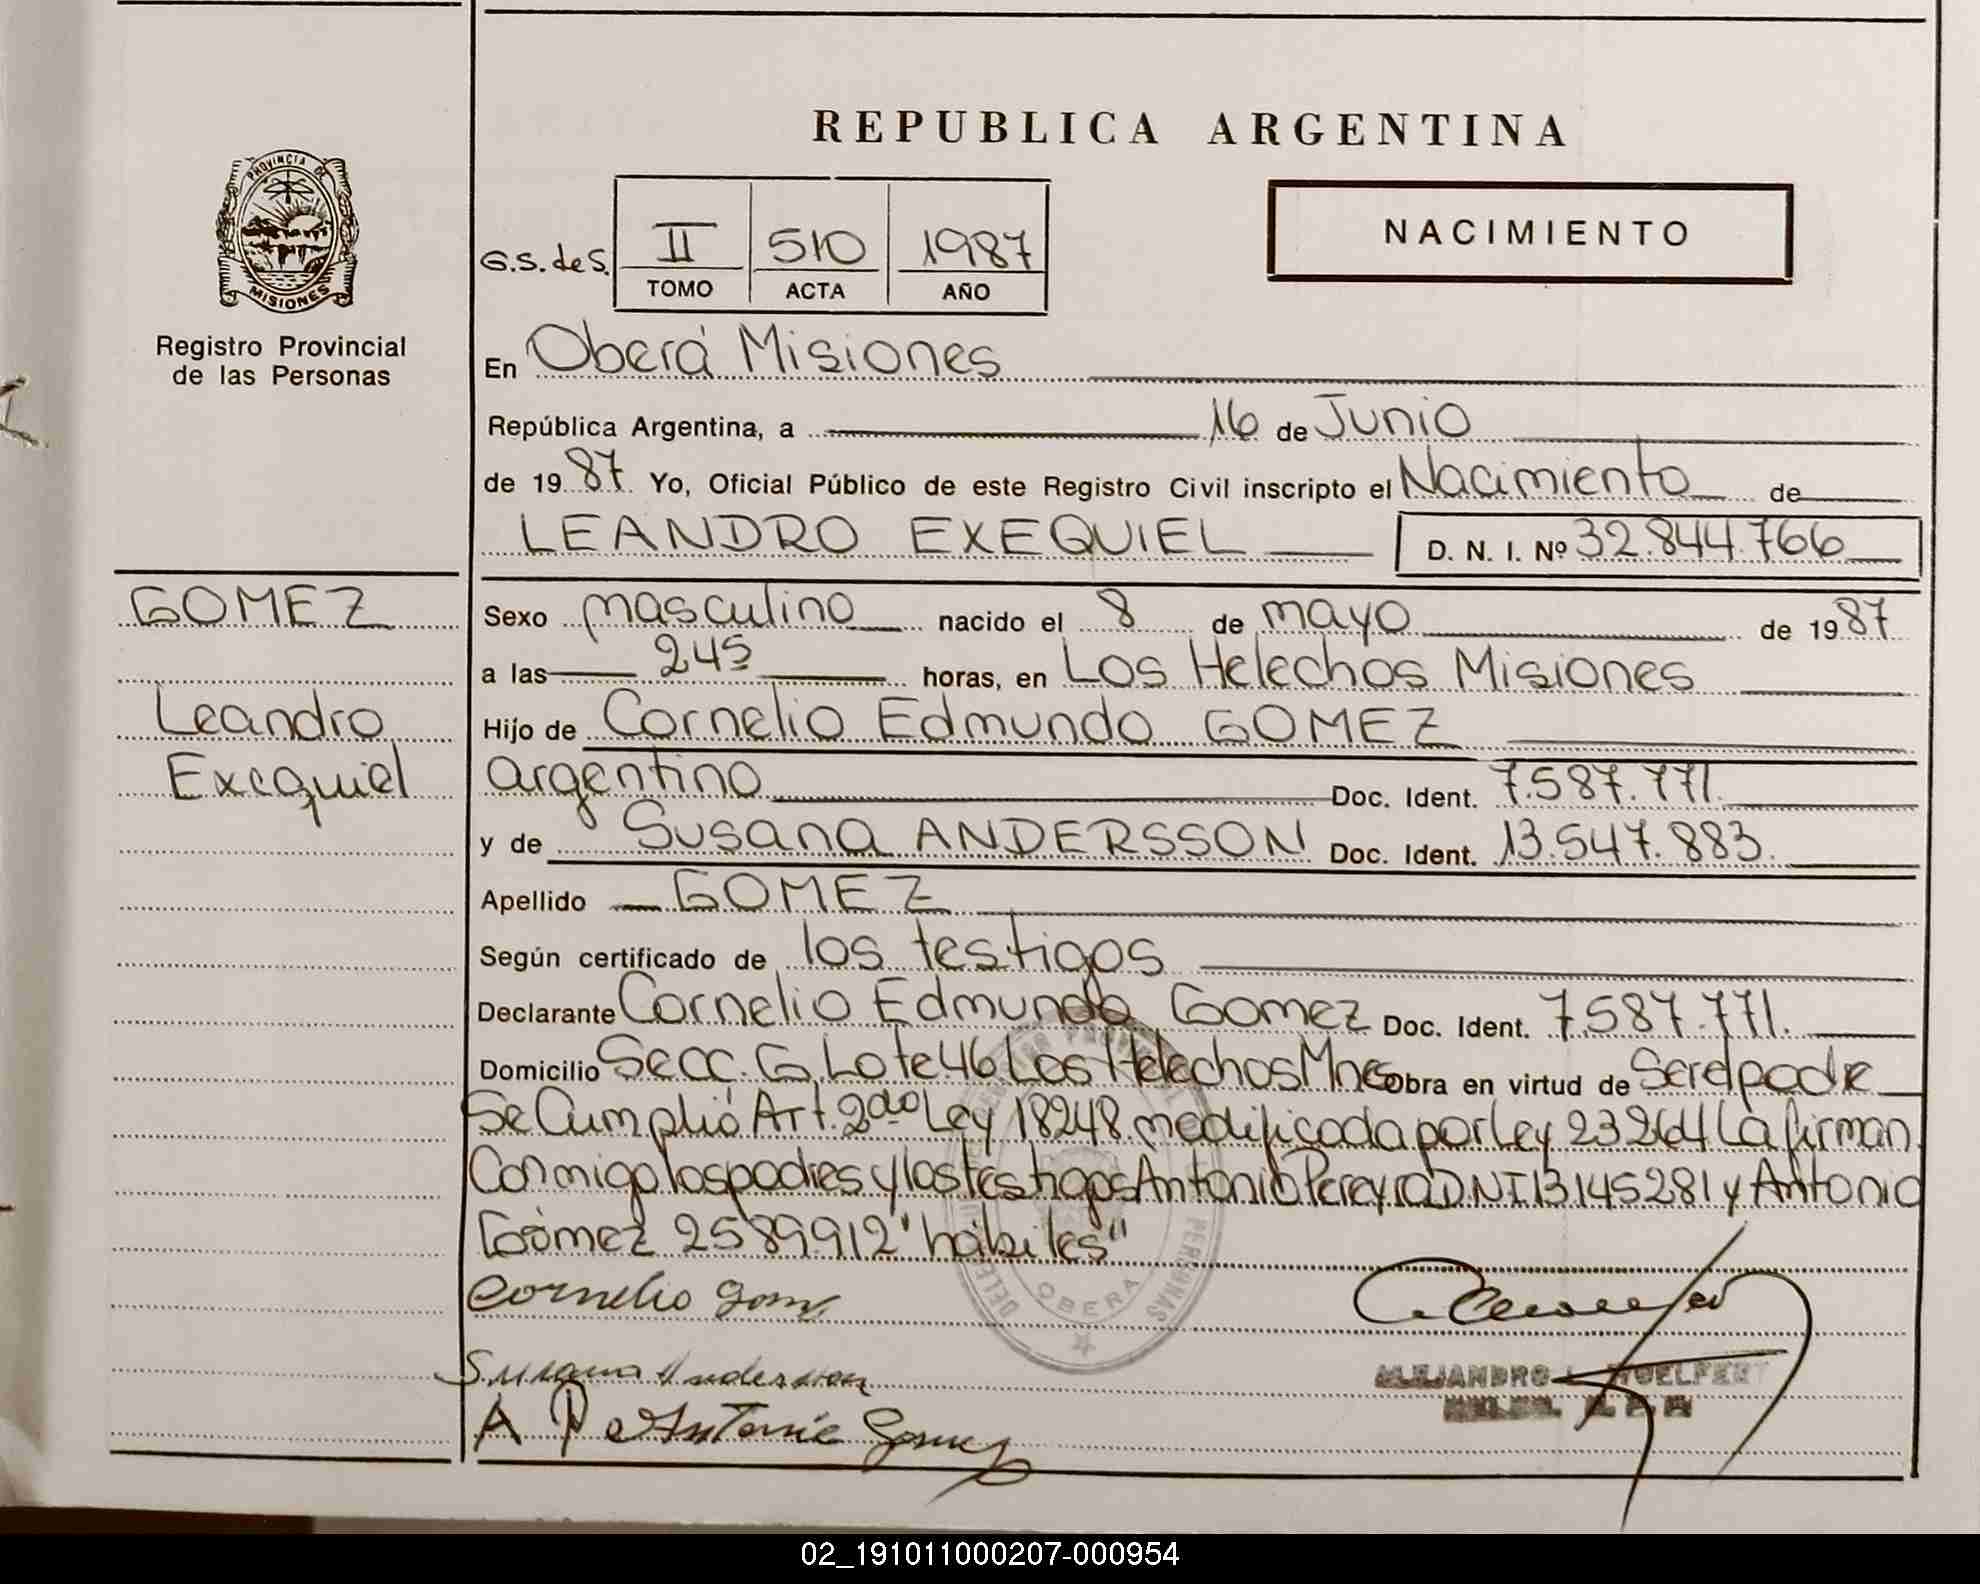 REPUBLICA ARGENTINA
PROVINCIA DE
MISIONES
Registro Provincial
de las Personas
NACIMIENTO
G.S. de S. II 510 1987
TOMO ACTA AÑO
En Oberá Misiones
República Argentina, a 16 de Junio
de 1987 Yo, Oficial Público de este Registro Civil inscripto el Nacimiento de
LEANDRO EXEQUIEL D. N. I. Nº 32.844.766
GOMEZ
Leandro
Exequiel
Sexo masculino nacido el 8 de mayo de 1987
a las 245 horas, en Los Helechos Misiones
Hijo de Cornelio Edmundo GOMEZ
argentino Doc. Ident. 7.587.771.
y de Susana ANDERSSON Doc. Ident. 13.547.883.
Apellido GOMEZ
Según certificado de los testigos
Declarante Cornelio Edmundo Gomez Doc. Ident. 7.587.771.
Domicilio Secc. G, Lote 46 Los Helechos Mnes Obra en virtud de Ser el padre
Se Cumplió Art. 2do Ley 18248 modificada por Ley 23264 La firman
Conmigo los padres y los testigos Antonio Pereyra D.N.I 13145281 y Antonio
Gómez 2589912 "hábiles"
Cornelio Gom
Susana Andersson
A P Antonio Gomez
OBERA
PERSONAS
ALEJANDRO
02_191011000207-000954